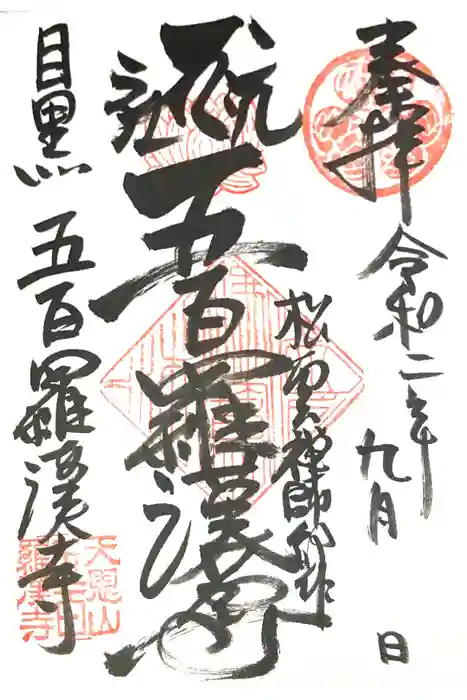 奉拝
令和二年
九月
日
松雲禅師
五百羅漢尊
目黒 五百羅漢寺
天恩山
五百
羅漢寺